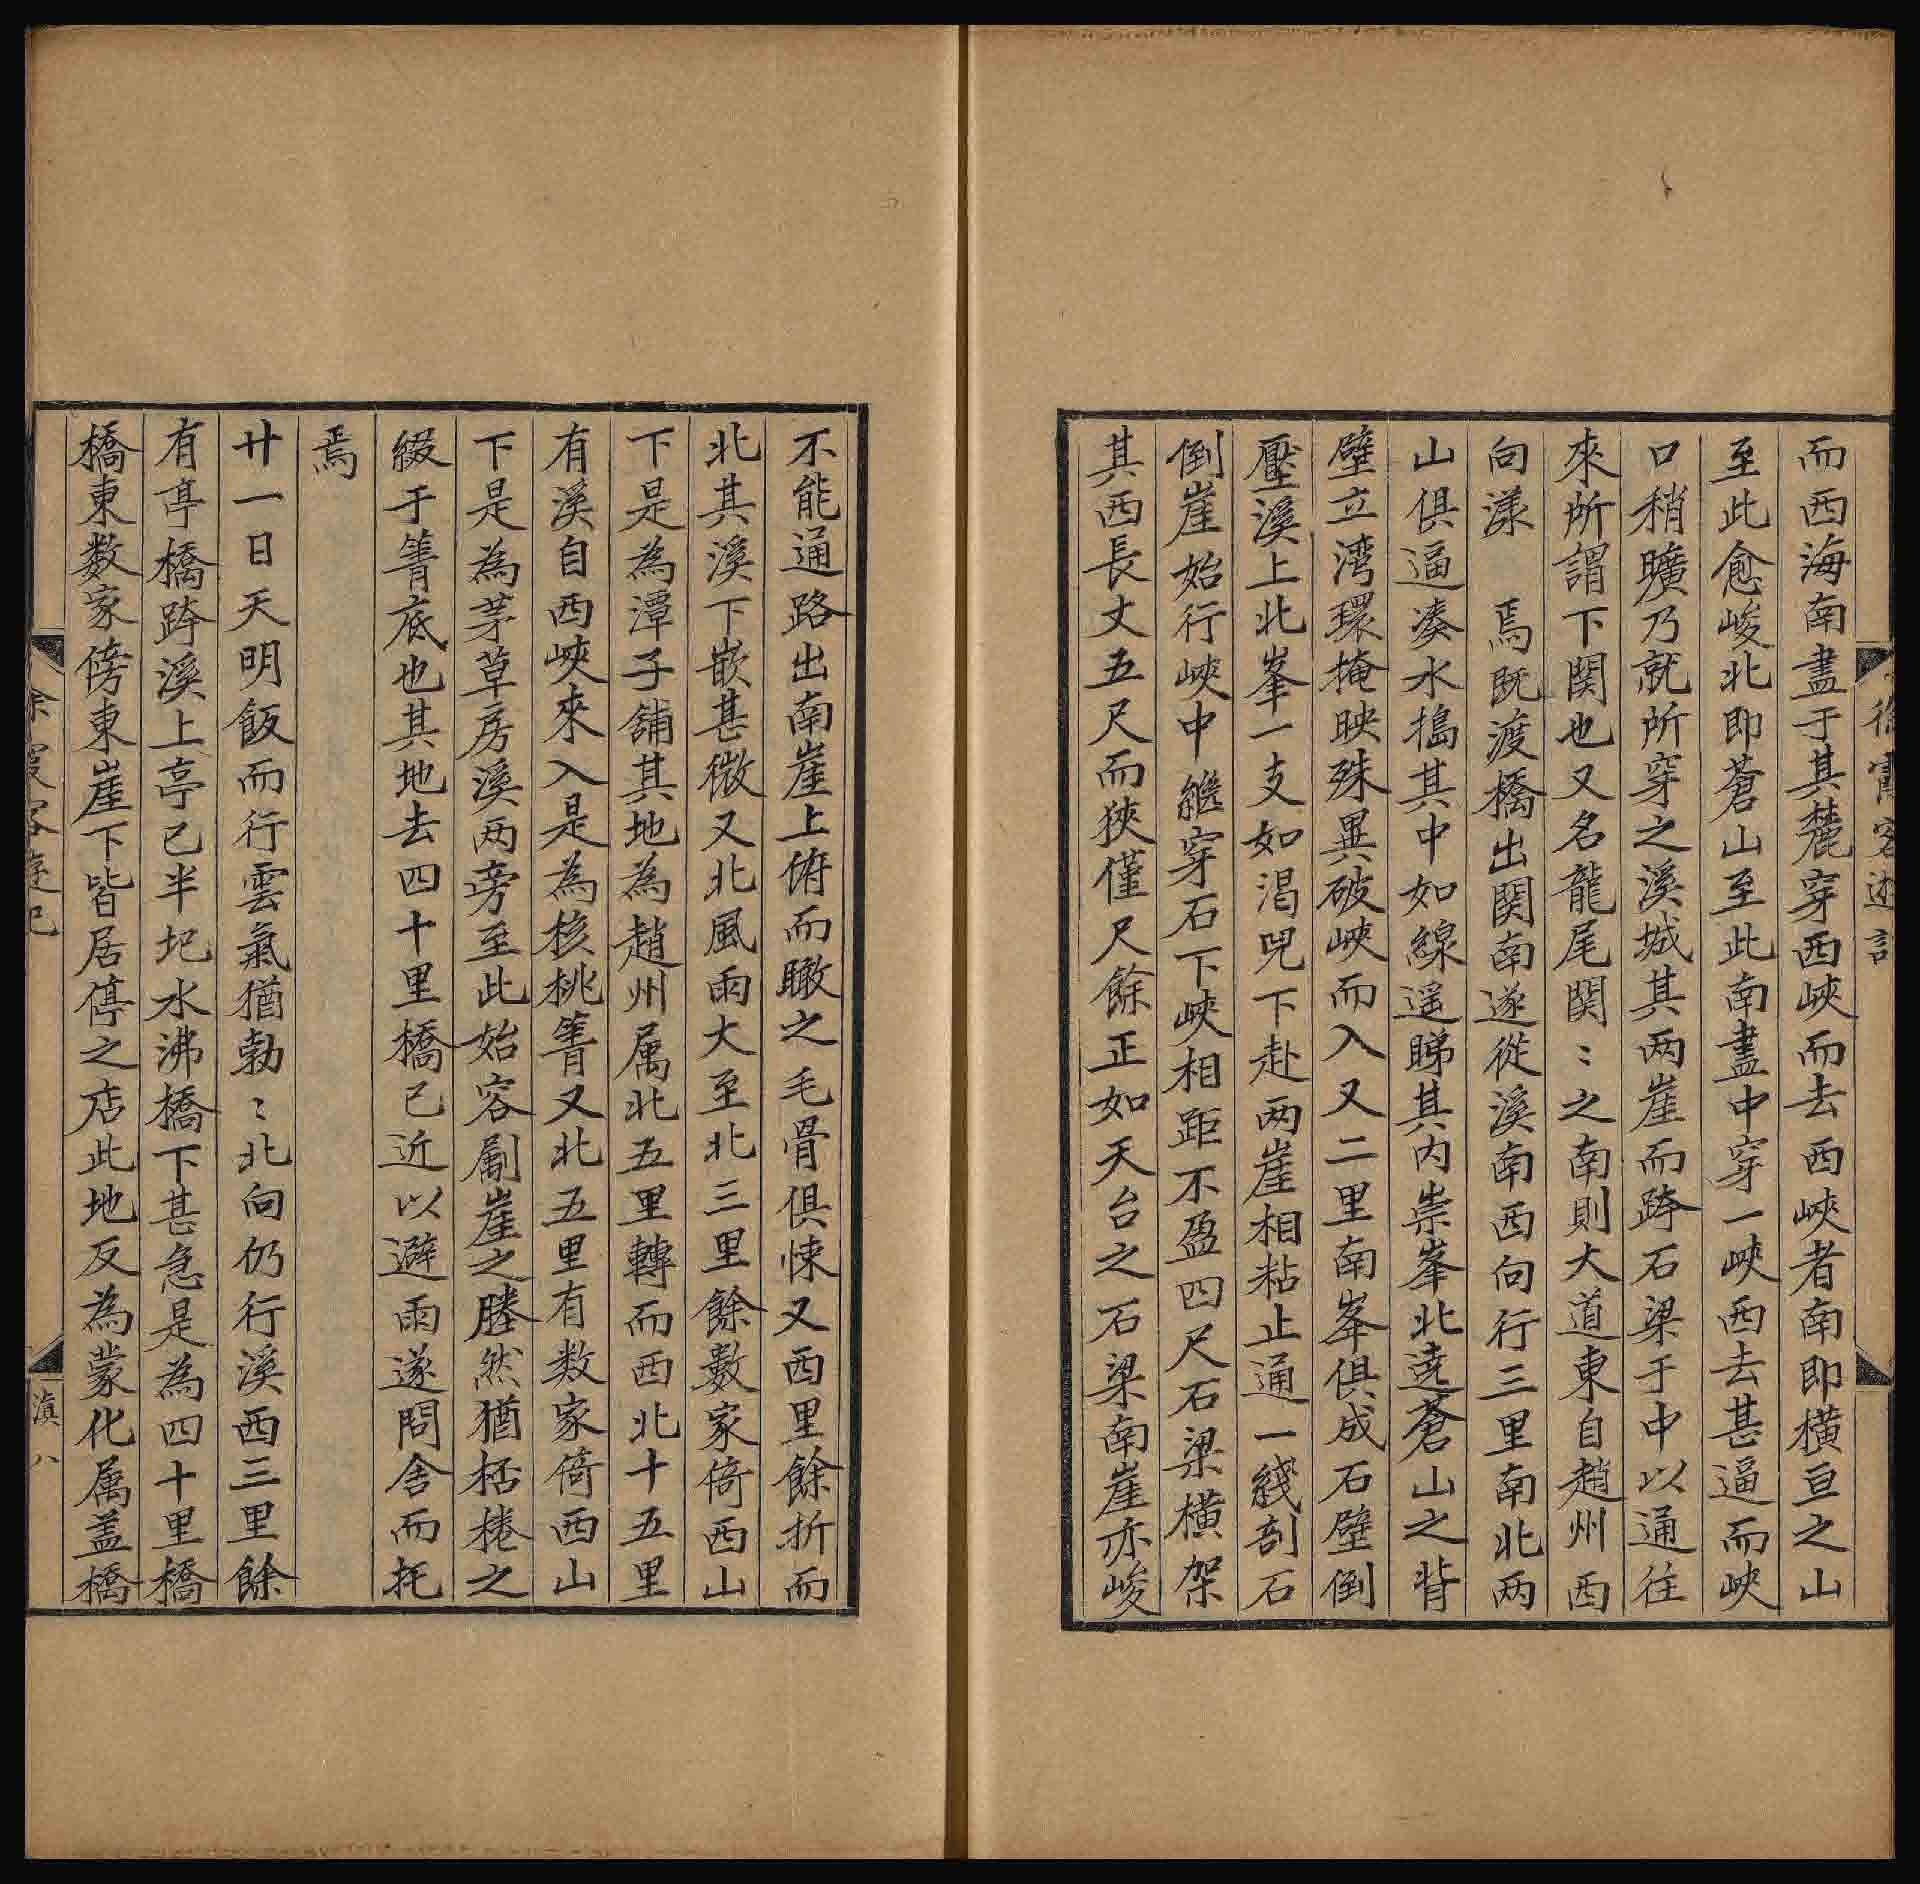 徐霞客遊記
而西海南盡于其麓穿西峽而去西峽者南即橫亘之山
至此愈峻北即蒼山至此南盡中穿一峽西去甚逼而峽
口稍曠乃就所穿之溪城其两崖而跨石梁于中以通往
來所謂下関也又名龍尾関〻之南則大道東自趙州西
向漾　焉既渡橋出関南遂從溪南西向行三里南北两
山俱逼湊水搗其中如線遥睇其内崇峯北遶蒼山之背
壁立湾環掩映殊異破峽而入又二里南峯俱成石壁倒
壓溪上北峯一支如渴兕下赴两崖相粘止通一綫剖石
倒崖始行峽中繼穿石下峽相距不盈四尺石梁橫架
其西長丈五尺而狹僅尺餘正如天台之石梁南崖亦峻
不能通路出南崖上俯而瞰之毛骨俱悚又西里餘折而
北其溪下嵌甚微又北風雨大至北三里餘數家倚西山
下是為潭子舖其地為趙州属北五里轉而西北十五里
有溪自西峽來入是為核桃箐又北五里有数家倚西山
下是為茅草房溪两旁至此始容斸崖之塍然猶桮棬之
綴于箐底也其地去四十里橋已近以避雨遂問舍而托
焉
廿一日天明飯而行雲氣猶勃〻北向仍行溪西三里餘
有亭橋跨溪上亭已半圯水沸橋下甚急是為四十里橋
橋東数家傍東崖下皆居停之店此地反為蒙化属盖橋
徐霞客遊記
滇八